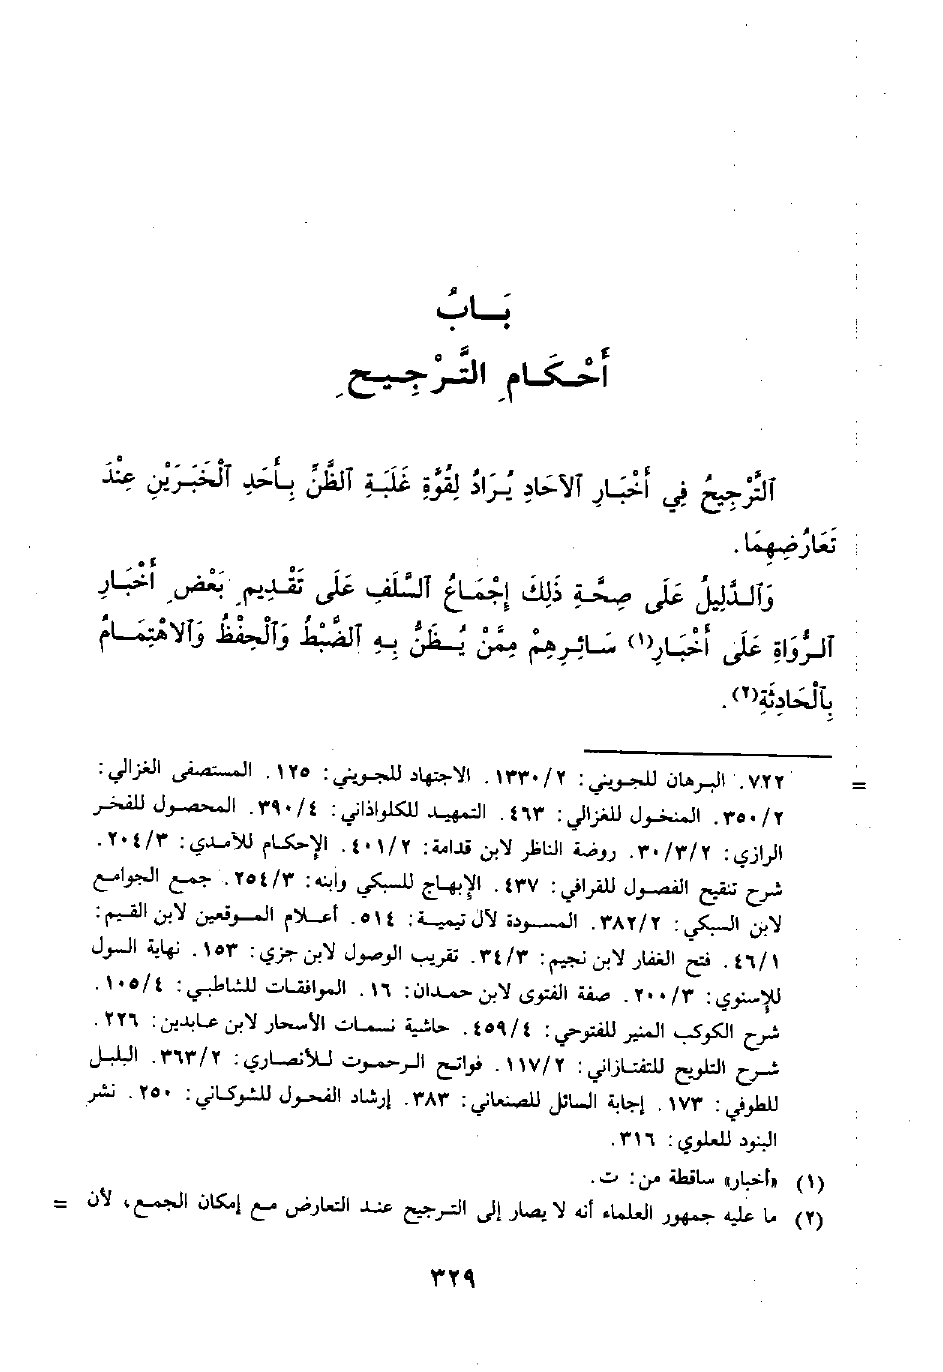 بَــابُ
أَحْكَامِ التَّرْجِيحِ
اَلتَّرْجِيحُ فِي أَخْبَارِ اَلآحَادِ يُرَادُ لِقُوَّةِ غَلَبَةِ اَلظَّنِّ بِأَحَدِ اَلْخَبَرَيْنِ عِنْدَ
تَعَارُضِهِمَا.
وَاَلدَّلِيلُ عَلَى صِحَّةِ ذَلِكَ إِجْمَاعُ اَلسَّلَفِ عَلَى تَقْدِيمِ بَعْضِ أَخْبَارِ
اَلرُّوَاةِ عَلَى أَخْبَارِ(١) سَائِرِهِمْ مِمَّنْ يُظَنُّ بِهِ اَلضَّبْطُ وَاَلْحِفْظُ وَاَلاهْتِمَامُ
بِاَلْحَادِثَةِ(٢).
= ٧٢٢. البرهان للجويني: ١٣٣٠/٢. الاجتهاد للجويني: ١٢٥. المستصفى الغزالي:
٣٥٠/٢. المنخول للغزالي: ٤٦٣. التمهيد للكلواذاني: ٣٩٠/٤. المحصول للفخر
الرازي: ٣٠/٣/٢. روضة الناظر لابن قدامة: ٤٠١/٢. الإحكام للآمدي: ٢٠٤/٣.
شرح تنقيح الفصول للقرافي: ٤٣٧. الإبهاج للسبكي وابنه: ٢٥٤/٣. جمع الجوامع
لابن السبكي: ٣٨٢/٢. المسودة لآل تيمية: ٥١٤. أعلام الموقعين لابن القيم:
٤٦/١. فتح الغفار لابن نجيم: ٣٤/٣. تقريب الوصول لابن جزي: ١٥٣. نهاية السول
للإسنوي: ٢٠٠/٣. صفة الفتوى لابن حمدان: ١٦. الموافقات للشاطبي: ١٠٥/٤.
شرح الكوكب المنير للفتوحي: ٤٥٩/٤. حاشية نسمات الأسحار لابن عابدين: ٢٢٦.
شرح التلويح للتفتازاني: ١١٧/٢. فواتح الرحموت للأنصاري: ٣٦٣/٢. البلبل
للطوفي: ١٧٣. إجابة السائل للصنعاني: ٣٨٣. إرشاد الفحول للشوكاني: ٢٥٠. نشر
البنود للعلوي: ٣١٦.
(١) «أخبار» ساقطة من: ت.
(٢) ما عليه جمهور العلماء أنه لا يصار إلى الترجيح عند التعارض مع إمكان الجمع، لأن =
٣٢٩